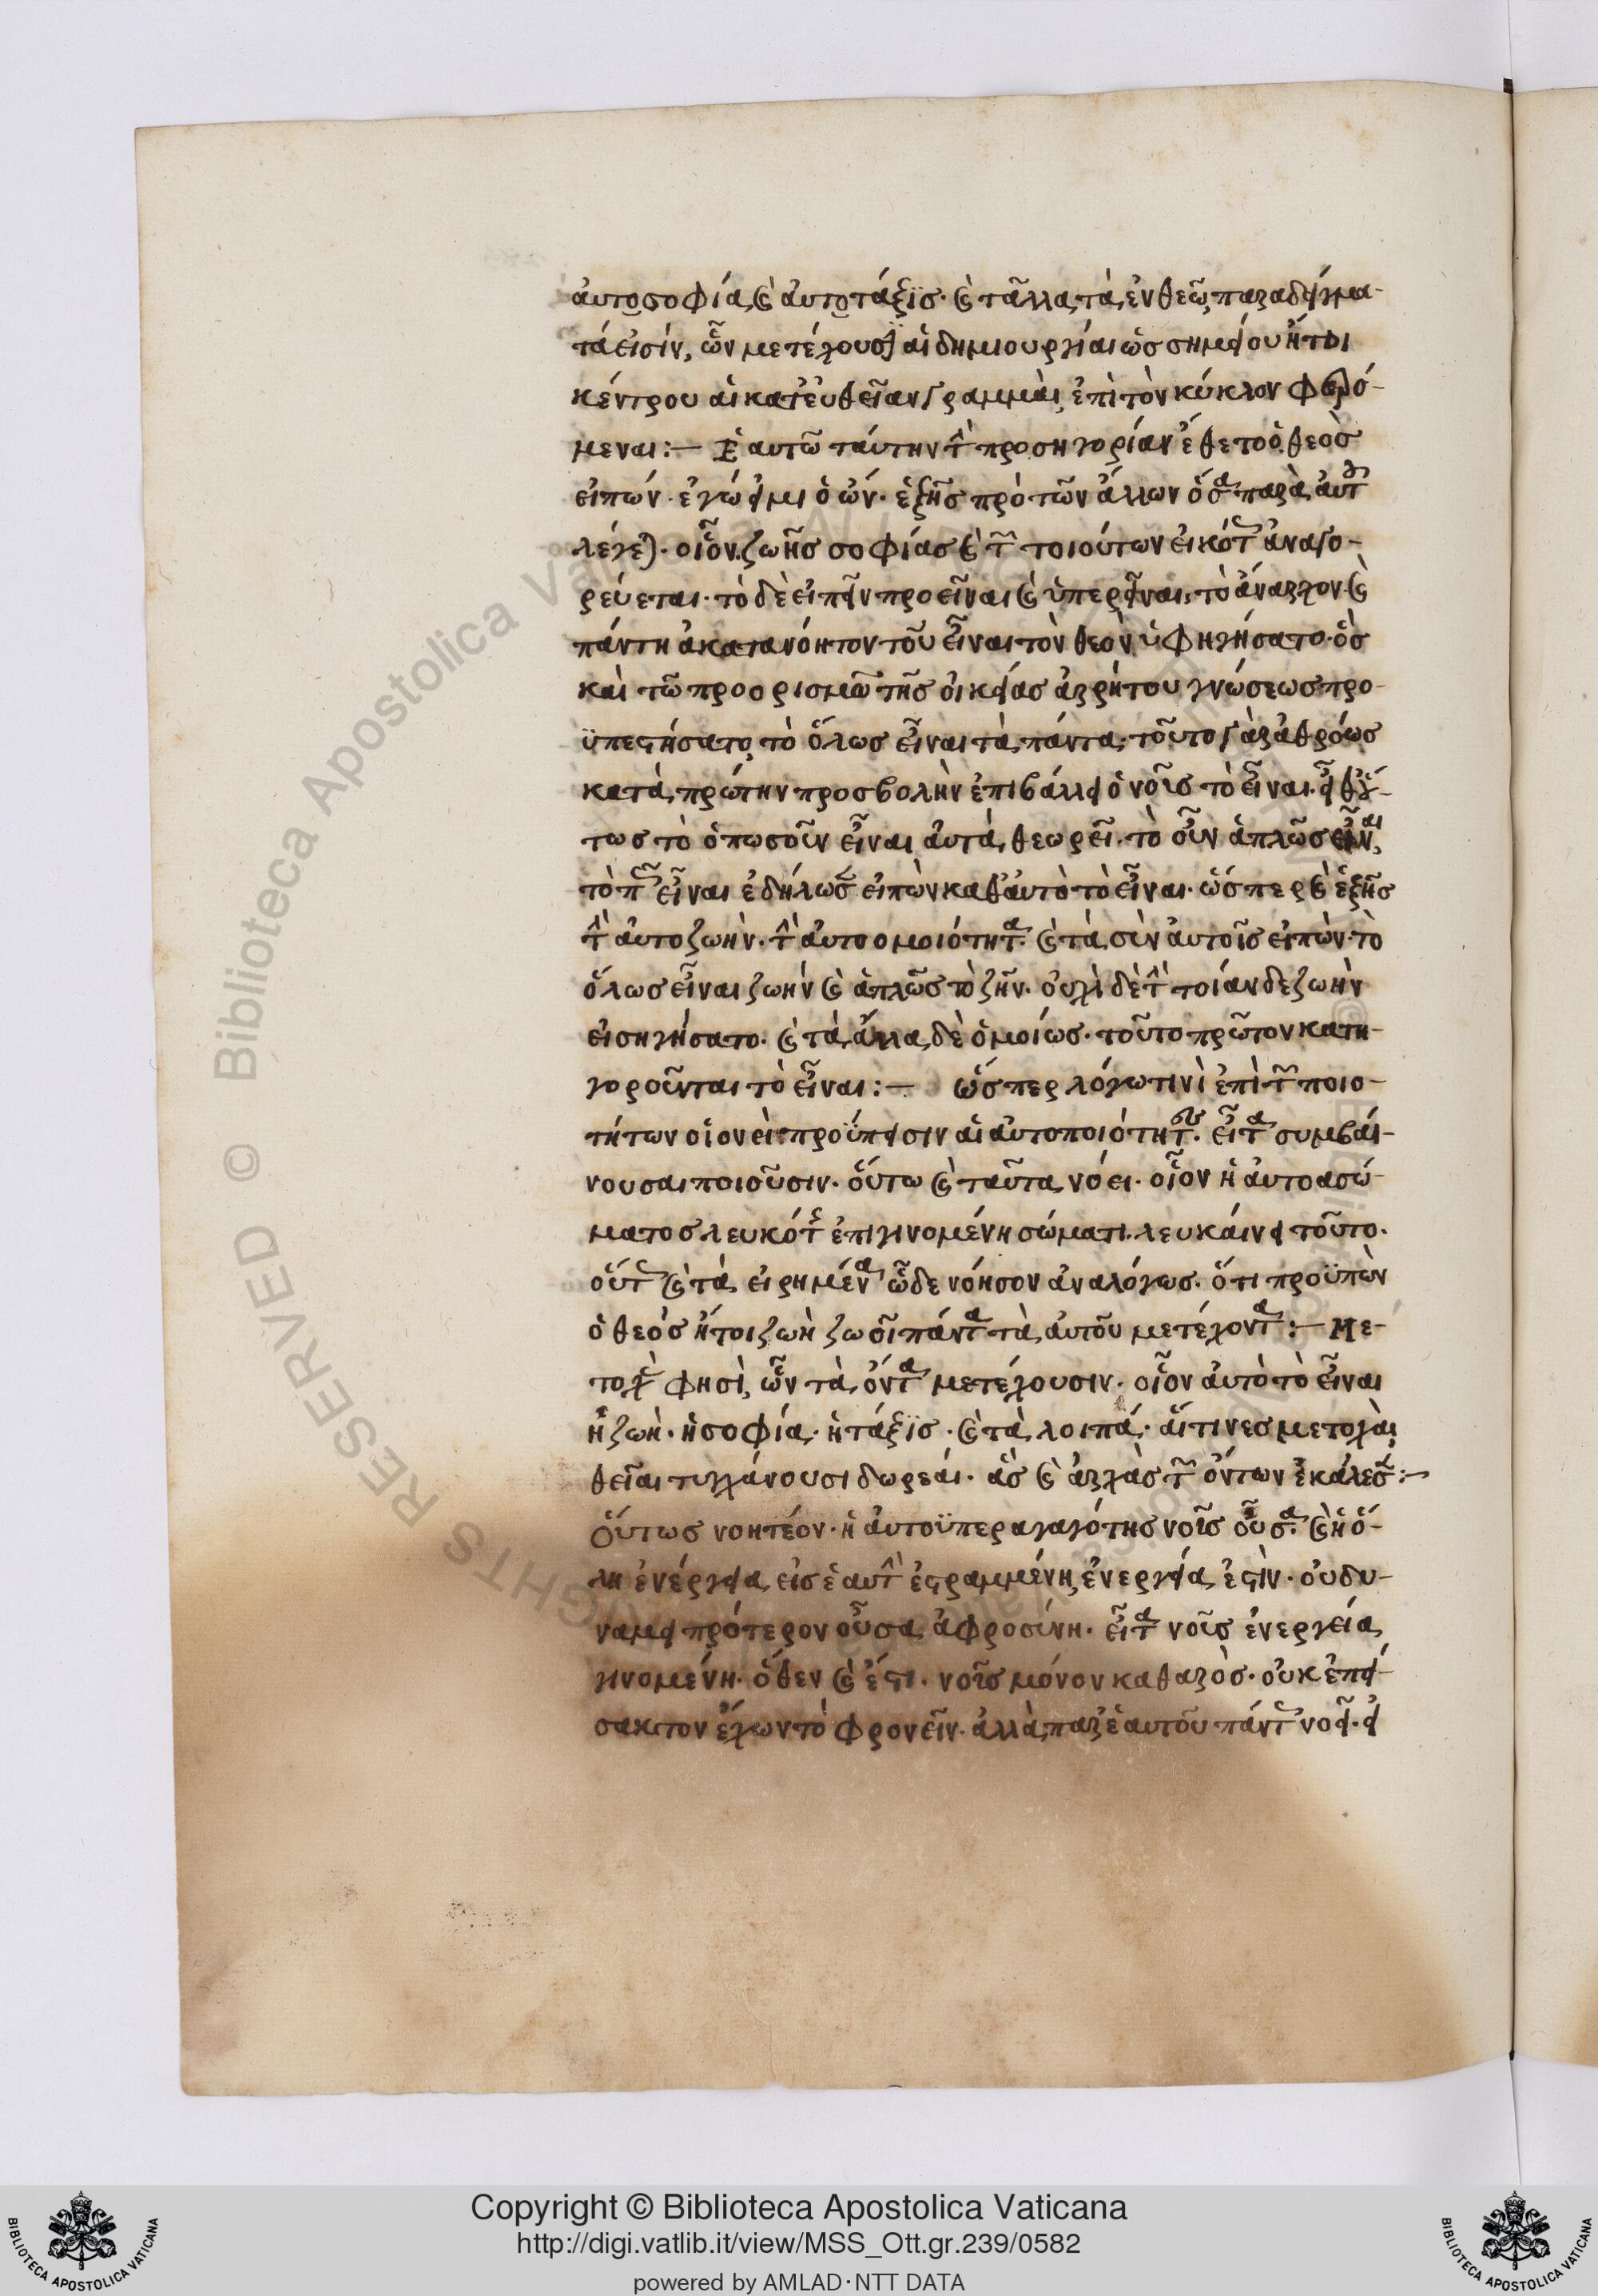 αὐτοσοφία, καὶ αὐτοτάξϊς· καὶ τἄλλα τὰ ἐν θεῶ παραδείγμα-
τά εἰσίν, ὧν μετέχουσιν αἱ δημιουργίαι ὡς σημείου ἤτοι
κέντρου αἱ κατ' εὐθεῖαν γραμμαὶ, ἐπὶ τὸν κύκλον φερό-
μεναι :— Ἑαυτῶ ταύτην τὴν προσηγορίαν ἔθετο ὁ θεὸς
εἰπών· ἐγώ εἰμι ὁ ὤν· ἑξῆς πρὸ τῶν ἄλλων ὅσα παρὰ αὐτοῦ
λέγεται· οἷον ζωῆς σοφίας καὶ τῶν τοιούτων εἰκότως ἀναγο-
ρεύεται· τὸ δὲ εἰπεῖν προεῖναι καὶ ὑπερεῖναι, τὸ ἄναρχον καὶ
πάντη ἀκατανόητον τοῦ εἶναι τὸν θεὸν ὑφηγήσατο· ὃς
καὶ τῶ προορισμῶ τῆς οἰκείας ἀρρήτου γνώσεως προ-
ϋπεστήσατο τὸ ὅλως εἶναι τὰ πάντα· τοῦτο γὰρ ἀθρόως
κατὰ πρώτην προσβολὴν ἐπιβάλλει ὁ νοῦς τὸ εἶναι· εἶθ' οὕ-
τως τὸ ὁπωσοῦν εἶναι αὐτὰ θεωρεῖ· τὸ οὖν ἁπλῶς εἶναι,
τὸ πῶς εἶναι ἐδήλωσεν εἰπὼν καθ' αὑτὸ τὸ εἶναι· ὥσπερ καὶ ἑξῆς
τὴν αὐτοζωήν· τὴν αὐτοομοιότητα· καὶ τὰ σὺν αὐτοῖς εἰπὼν· τὸ
ὅλως εἶναι ζωήν καὶ ἁπλῶς τὸ ζῆν· οὐχὶ δὲ τὴν ποίαν δε ζωὴν
εἰσηγήσατο· καὶ τὰ ἄλλα δὲ ὁμοίως· τοῦτο πρῶτον κατη-
γοροῦνται τὸ εἶναι :— ὥσπερ λόγω τινὶ ἐπὶ τῶν ποιο-
τήτων οἱονεὶ προϋπεισιν αἱ αὐτοποιότητες· εἶτα συμβαί-
νουσαι ποιοῦσιν· οὕτω καὶ ταῦτα νόει· οἷον ἡ αὐτοασώ-
ματος λευκότης ἐπιγινομένη σώματι λευκαίνει τοῦτο·
οὕτως καὶ τὰ εἰρημένα ὧδε νόησον ἀναλόγως· ὅτι προϋπὼν
ὁ θεὸς ἤτοι ζωὴ ζωοῖ πάντα τὰ αὐτοῦ μετέχοντα :— Με-
τοχὴν φησὶ, ὧν τὰ ὄντα μετέχουσιν· οἷον αὐτὸ τὸ εἶναι
ἢ ζωὴ· ἡ σοφία· ἡ τάξϊς· καὶ τὰ λοιπά· αἵτινες μετοχὰι
θεῖαι τυγχάνουσι δωρεάι· ἃς καὶ ἀρχὰς τῶν ὄντων ἐκάλεσεν :—
Οὕτως νοητέον· ἡ αὐτοϋπεραγαγότης νοῦς οὖσα· καὶ ἡ ὅ-
λη ἐνέργεια εἰς ἑαυτὴν ἐστραμμένη, ἐνεργεία ἐστὶν· οὐ δυ-
ναμει πρότερον οὖσα ἀφροσύνη· εἶτα νοῦς ἐνεργεία
γινομένη· ὅθεν καὶ ἔστι· νοῦς μόνον καθαρὸς· οὐκ ἐπεί-
σακτον ἔχων τὸ φρονεῖν· ἀλλὰ παρ' ἑαυτοῦ πάντως νοεῖ· εἰ
Copyright © Biblioteca Apostolica Vaticana
http://digi.vatlib.it/view/MSS_Ott.gr.239/0582
powered by AMLAD·NTT DATA
BIBLIOTECA APOSTOLICA VATICANA
BIBLIOTECA APOSTOLICA VATICANA